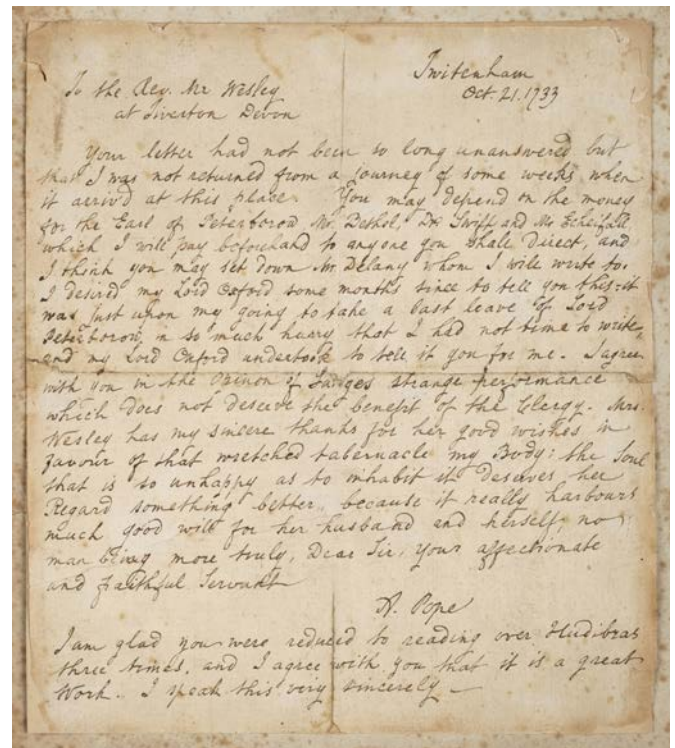 Twitenham
Oct. 21. 1733
To the Rev. Mr Wesley
at Tiverton Devon
Your letter had not been so long unanswered but
that I was not returned from a journey of some weeks when
it arriv'd at this place. You may depend on the money
for the Earl of Peterborow Mr. Bethel, Dr Swift and Mr
which I will pay beforehand to anyone you shall Direct, and
I think you may set down Mr. Delany whom I will write to.
I desired my Lord Oxford some months since to tell you this: it
was just upon my going to take a last leave of Lord
Peterborow in so much hurry that I had not time to write,
and my Lord Oxford undertook to tell it you for me. I agree
with you in the Opinon of strange performance
which does not deserve the benefit of the Clergy. Mrs.
Wesley has my sincere thanks for her good wishes in
favour of that wretched tabernacle my Body: the Soul
that is so unhappy as to inhabit it deserves her
Regard something better, because it really harbours
much good will for her husband and herself, no
man being more truly, Dear Sir, your affectionate
and faithful Servant
A. Pope
I am glad you were reduced to reading over Hudibras
three times, and I agree with you that it is a great
Work. I speak this very sincerely —